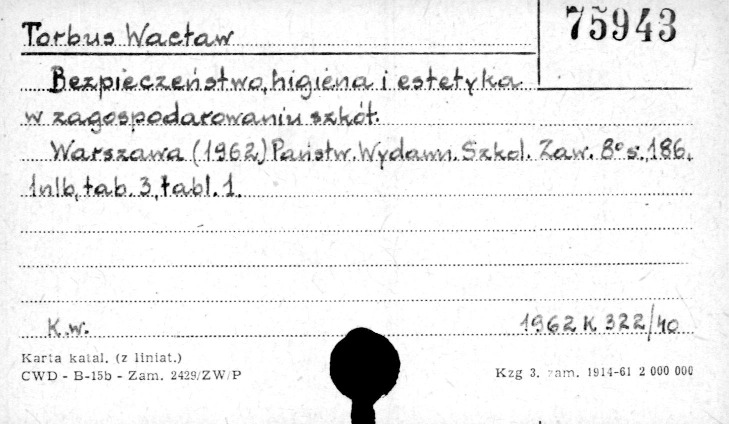 75943
Torbus Wacław
Bezpieczeństwo, higiena i estetyka
w zagospodarowaniu szkół.
Warszawa (1962) Państw. Wydawn. Szkol. Zaw. 8° s. 186,
1nlb, tab. 3, tabl. 1.
K.w. 1962 K 322/40
Karta katal. (z liniat.)
CWD - B-15b - Zam. 2429/ZW/P Kzg 3. zam. 1914-61 2 000 000